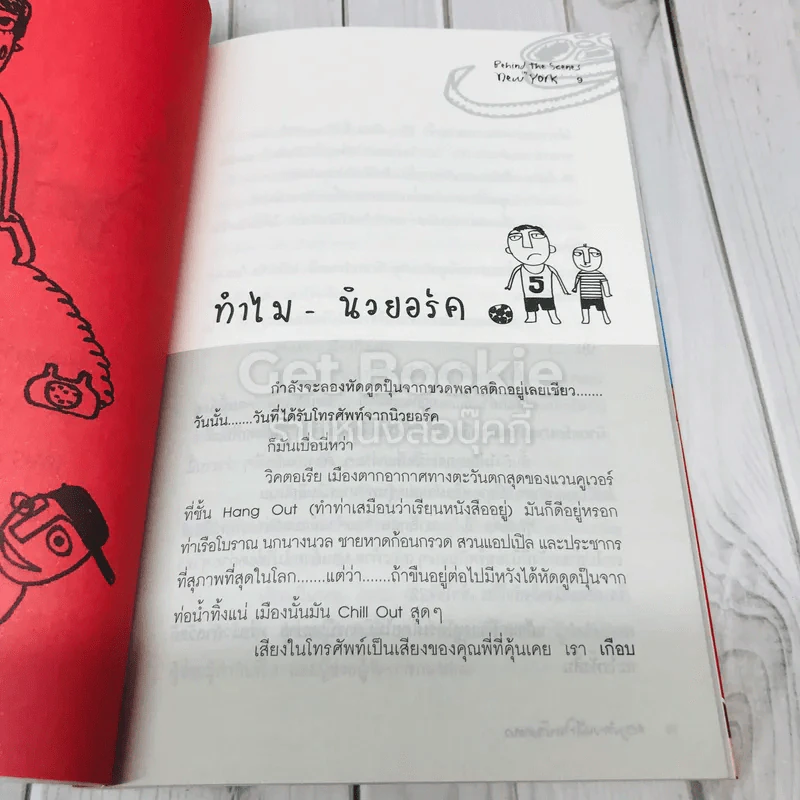 Behind the Scenes
New York 9
5
ทำไม - นิวยอร์ค
Get Bookie
ร้านหนังสือบุ๊คกี้
กำลังจะลองหัดดูดปุ๊นจากขวดพลาสติกอยู่เลยเชียว.......
วันนั้น.......วันที่ได้รับโทรศัพท์จากนิวยอร์ค
ก็มันเบื่อนี่หว่า
วิคตอเรีย เมืองตากอากาศทางตะวันตกสุดของแวนคูเวอร์
ที่ชั้น Hang Out (ทำท่าเสมือนว่าเรียนหนังสืออยู่) มันก็ดีอยู่หรอก
ท่าเรือโบราณ นกนางนวล ชายหาดก้อนกรวด สวนแอปเปิล และประชากร
ที่สุภาพที่สุดในโลก.......แต่ว่า.......ถ้าขืนอยู่ต่อไปมีหวังได้หัดดูดปุ๊นจาก
ท่อน้ำทิ้งแน่ เมืองนั้นมัน Chill Out สุดๆ
เสียงในโทรศัพท์เป็นเสียงของคุณพี่ที่คุ้นเคย เรา เกือบ